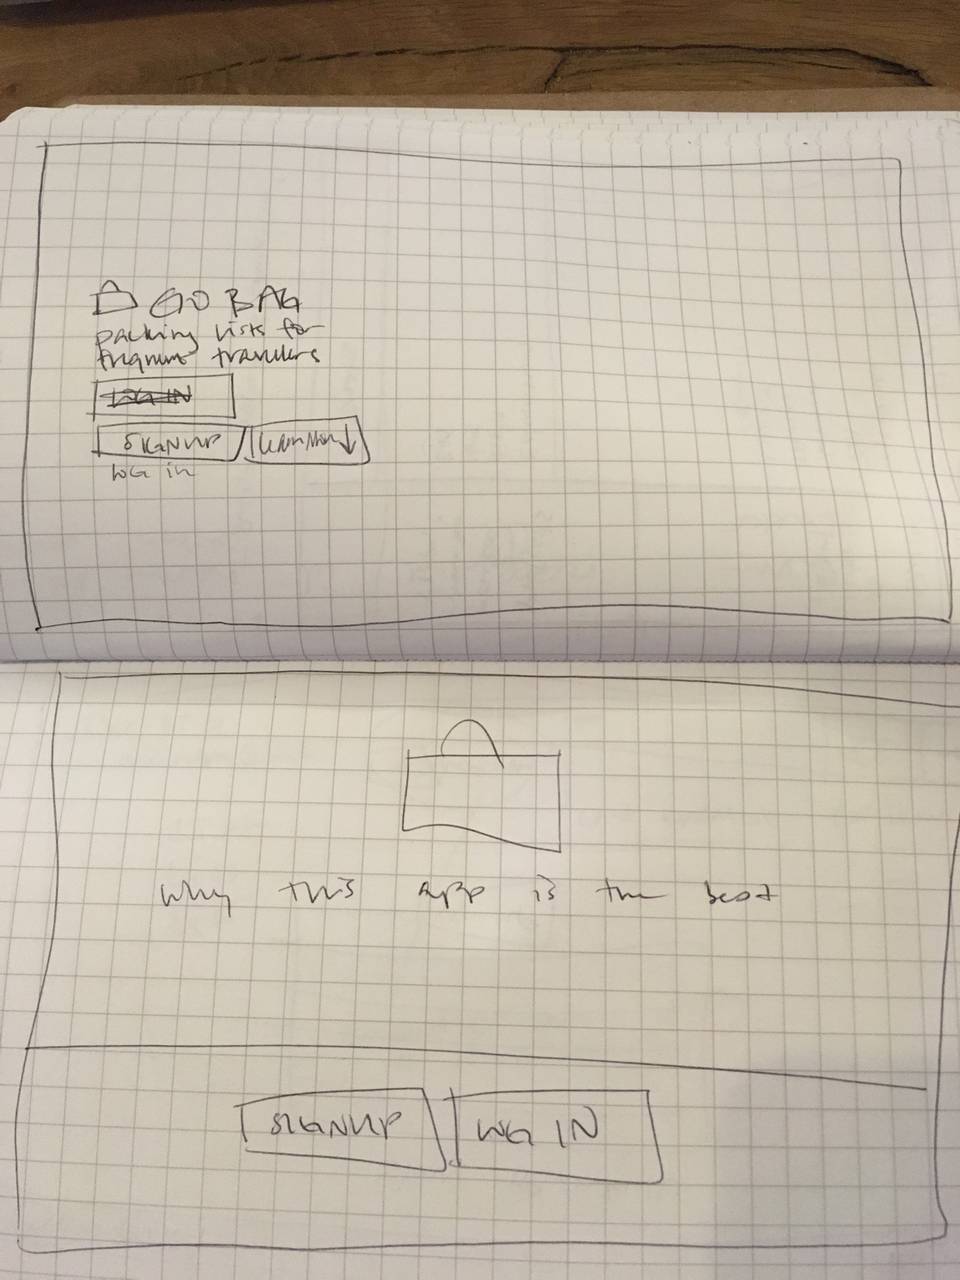 GO BAG
packing lists for
frequent travelers
LOG IN
SIGNUP learn more
LOG in
why this app is the best
SIGNUP LOG IN